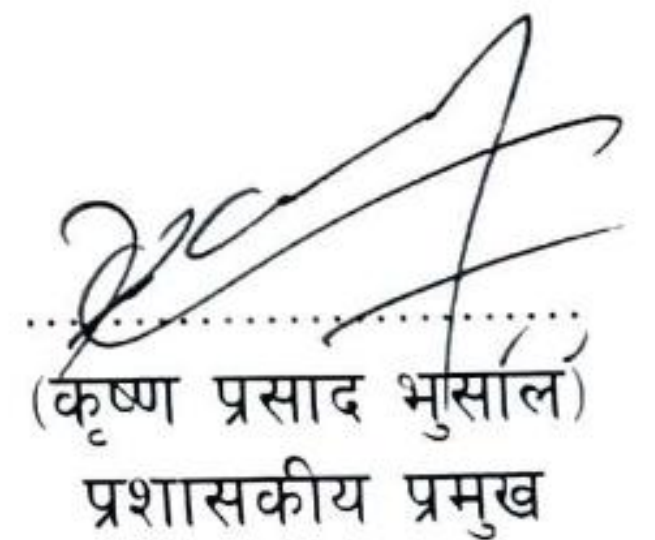 (कृष्ण प्रसाद भुसाल)
प्रशासकीय प्रमुख